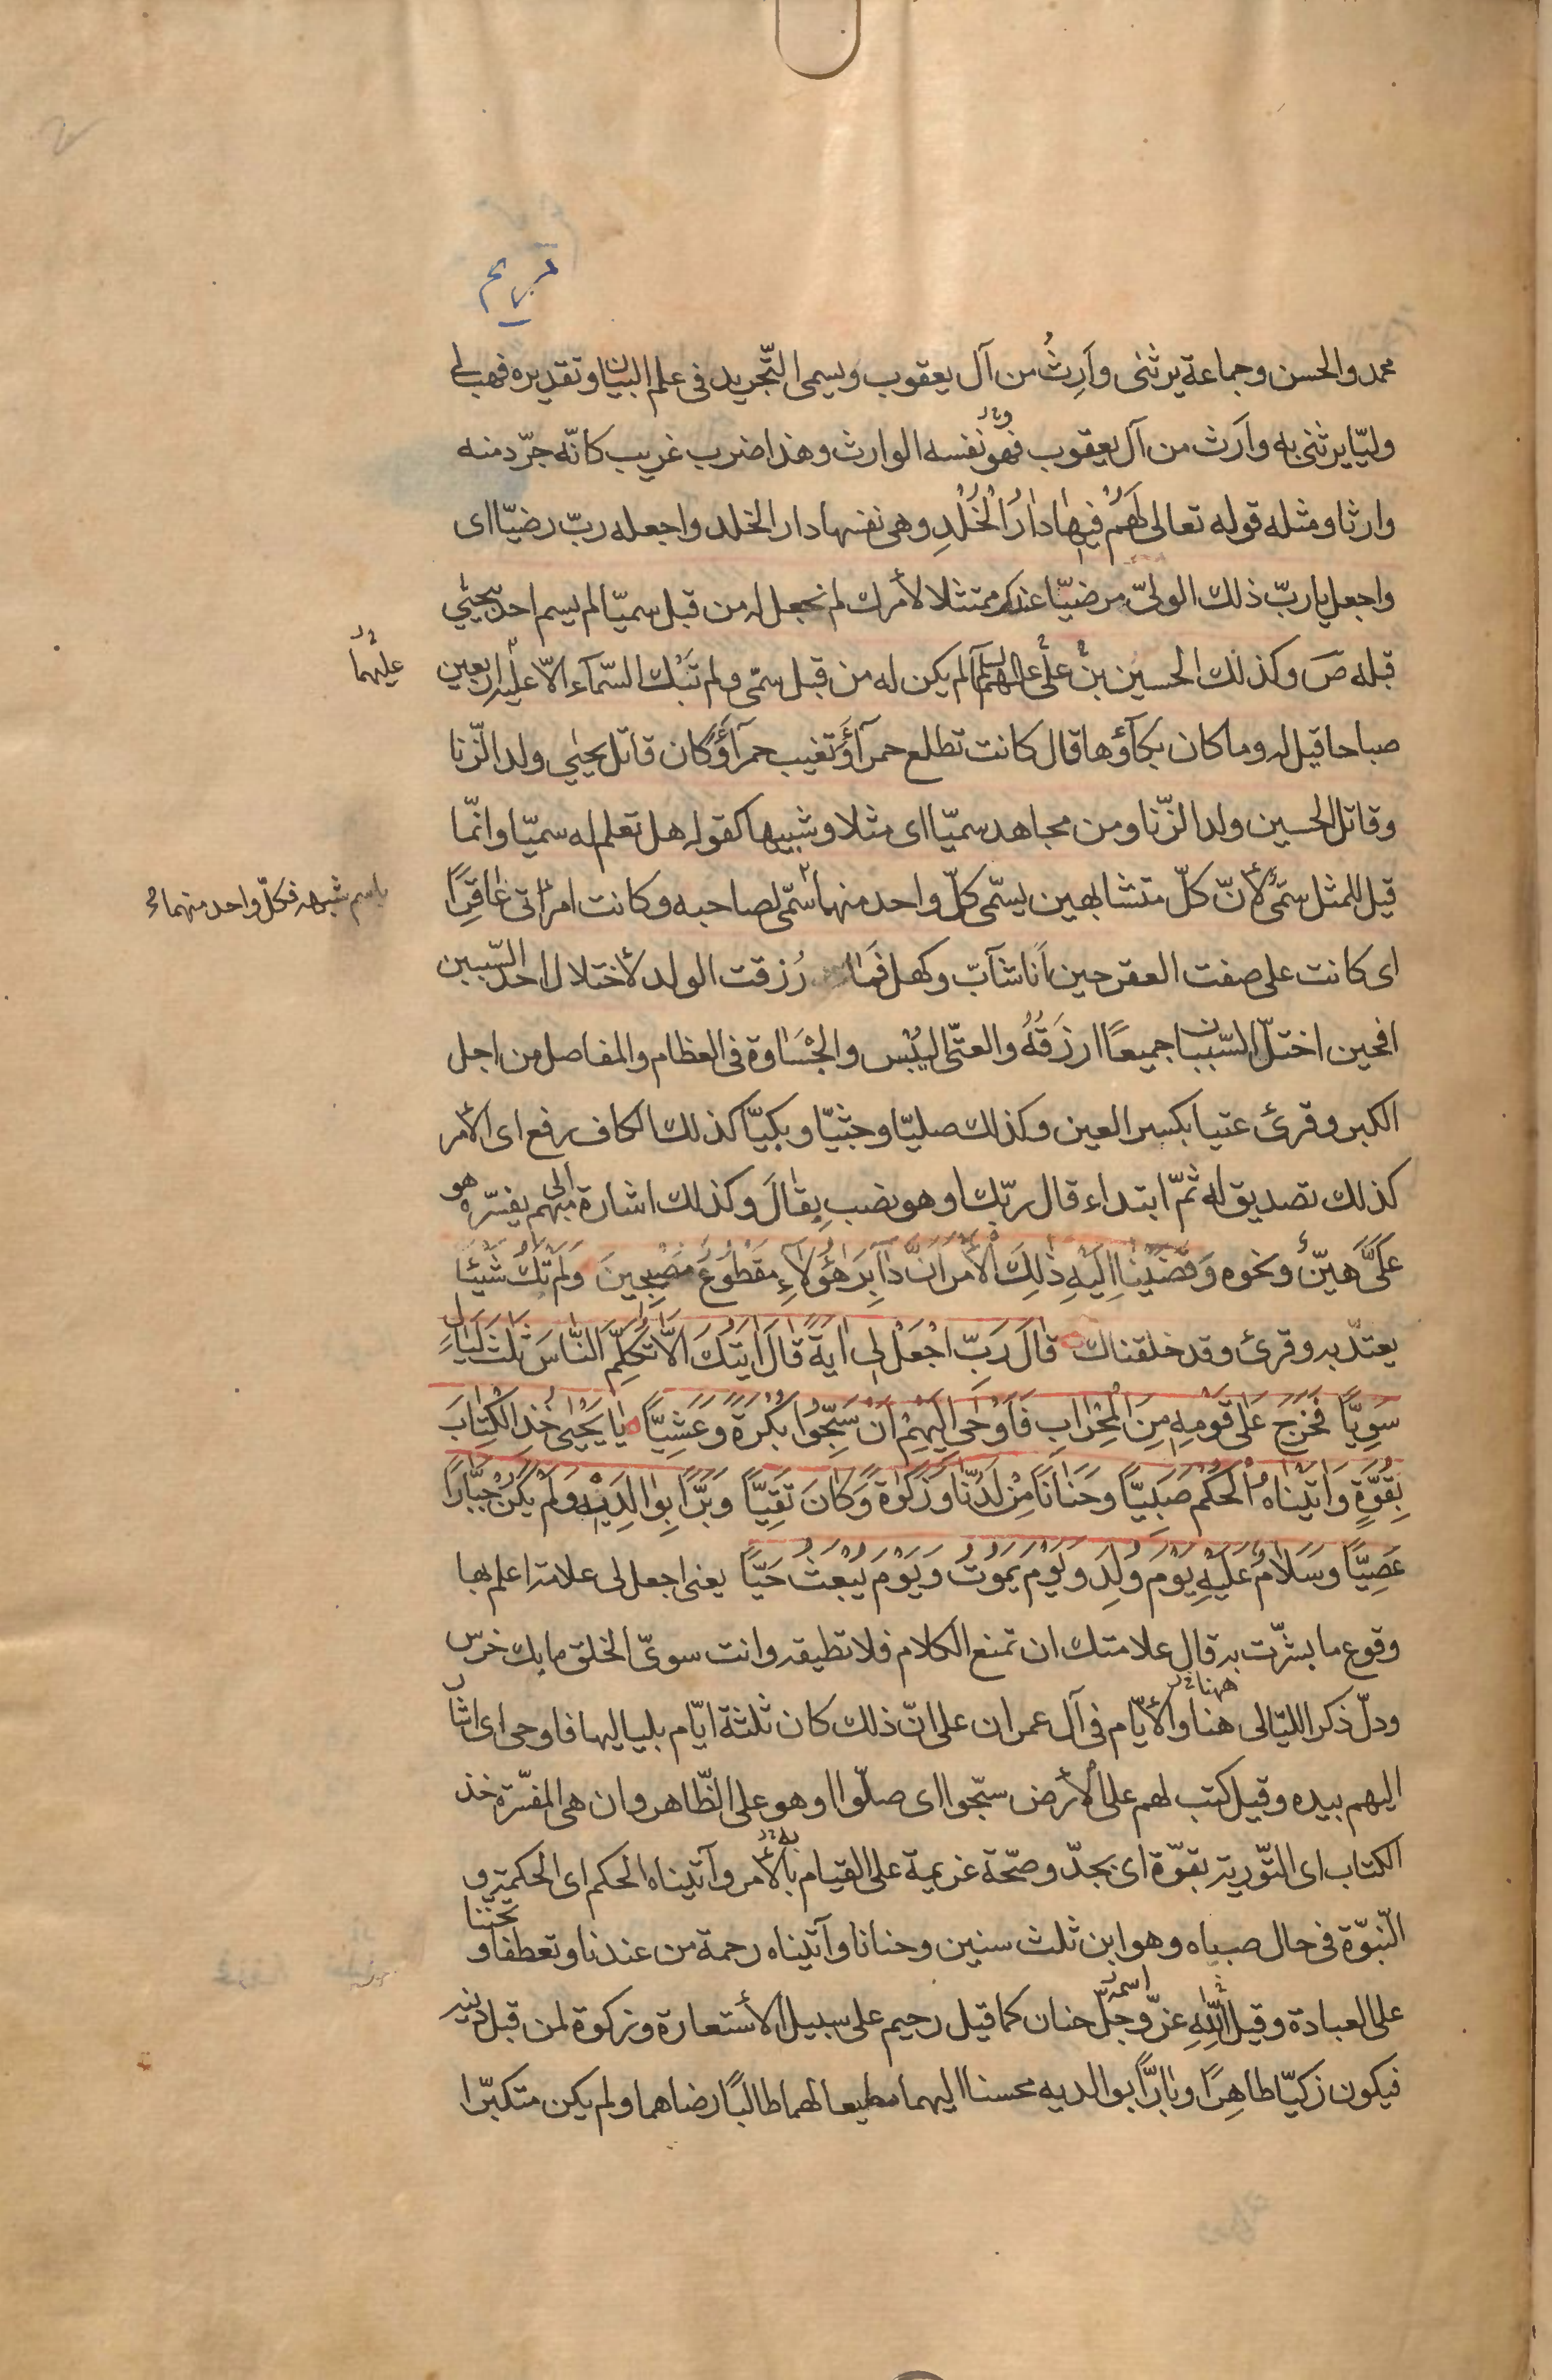 مريم
محمد والحسن وجماعة يرثنى وَارِثُ من آل يعقوب ويسمى التّجريد فى علم البيان وتقديره فهب لى
وليّا يرثنى به وارث من آل يعقوب فهو نفسه الوارث وهذا ضرب غريب كانّه جرّد منه
وارثا ومثله قوله تعالى لَهُمْ فيهٰا دٰارُ الْخُلْدِ وهى نفسها دار الخلد واجعله ربّ رضيّا اى
واجعل يا ربّ ذلك الولىّ مرضيّا عندك ممتثلا لأمرك لم نجعل له من قبل سميّا لم يسم احد بيحيٰي
قبله صَ وكذلك الحسين بن علّى عليهما السلم لم يكن له من قبل سمّى ولم تَبْك السّمآء الاّ عليه اربعين
عليهما
صباحا قيل له وما كان بكآؤها قال كانت تطلع حمرآءَ وتغيب حمرآءَ وكان قاتل يحيٰي ولد الزّنا
وقاتل الحسين ولد الزّنا ومن مجاهد سميّا اى مثلا وشبيها كقوله هل تعلم له سميّا وانّما
قيل للمثل سمّى لأنّ كلّ متشابهين يسمّى كلّ واحد منهما سمّى لصاحبه وكانت امرأتى عٰاقِرًا
باسم شبهه فكلّ واحد منهما
اى كانت على صفت العقر حين اَنا شآبّ وكهل فمٰا رُزقت الولد لأختلال احد السّببين
افحين اختلّ السّببان جميعًا ارزَقُهُ والعتّى اليُبْس والجْسٰاوة فى العظام والمفاصل من اجل
الكبر وقرئ عتيا بكسر العين وكذلك صليّا وجثيّا وبكيّا كذلك الكاف رفع اى الأمر
كذلك تصديق له ثمّ ابتداء قال ربّك او هو نصب بِقٰالَ وكذلك اشارة الى مبهم يفسّره هو
عَلَىَّ هَيِّنٌ ونحوه وَقَضَيْنٰا اِلَيْهِ ذٰلِكَ الْأَمْرَ اَنَّ دٰابِرَ هٰؤُلآءِ مَقْطُوعٌ مُصْبِحينَ وَلَمْ تَكُ شَيْئًا
يعتدّ به وقرئ وقد خلقناك قٰالَ رَبِّ اجْعَلْ لي اٰيَةً قٰالَ اٰيَتُكَ الاّٰ تُكَلِّمَ النّٰاسَ ثَلٰثَ لَيٰالٍ
سَوِيًّا فَخَرَجَ عَلىٰ قَوْمِهِ مِنَ الْمِحْرٰابِ فَاَوْحىٰ اِلَيْهِمْ اَنْ سَبِّحُوا بُكْرَةً وَعَشِيًّا يٰا يَحْيىٰ خُذِ الْكِتٰابَ
بِقُوَّةٍ وَاٰتَيْنٰاهُ الْحُكْمَ صَبِيًّا وَحَنٰانًا مِنْ لَدُنّٰا وَزَكٰوةً وَكٰانَ تَقِيًّا وَبَرًّا بِوٰالِدَيْهِ وَلَمْ يَكُنْ جَبّٰارًا
عَصِيًّا وَسَلٰامٌ عَلَيْهِ يَوْمَ وُلِدَ وَيَوْمَ يَمُوتُ وَيَوْمَ يُبْعَثُ حَيًّا يعنى اجعل لى علامة اعلم بها
وقوع ما بشّرت به قال علامتك ان تمنع الكلام فلا تطيقه وانت سوىّ الخلق ما بك خرس
ودلّ ذكر الليّالى هنا والأيّام فى آل عمران على انّ ذلك كان ثلثة ايّام بلياليها فاوحى اى اشار
ههنا
اليهم بيده وقيل كتب لهم على الأرض سبّحوا اى صلّوا او هو على الظّاهر وان هى المفسّرة خذ
الكتاب اى التّورية بقوّة اى بجدّ وصحّة عزيمة على القيام بالأمر وآتيناه الحكم اى الحكمة و
النّبوّة فى حال صباه وهو ابن ثلث سنين وحنانا وآتيناه رحمة من عندنا وتعطفا و تحنّنا
على العبادة وقيل اللّهِ عزّ وجلّ حنان كما قيل رحيم على سبيل الأستعارة وزكوة لمن قبل دينه
اسمه
فيكون زكيّا طاهِرًا وبٰارًّا بوالديه محسنا اليهما مطيعا لهما طالبًا رضاهما ولم يكن متكبّرا